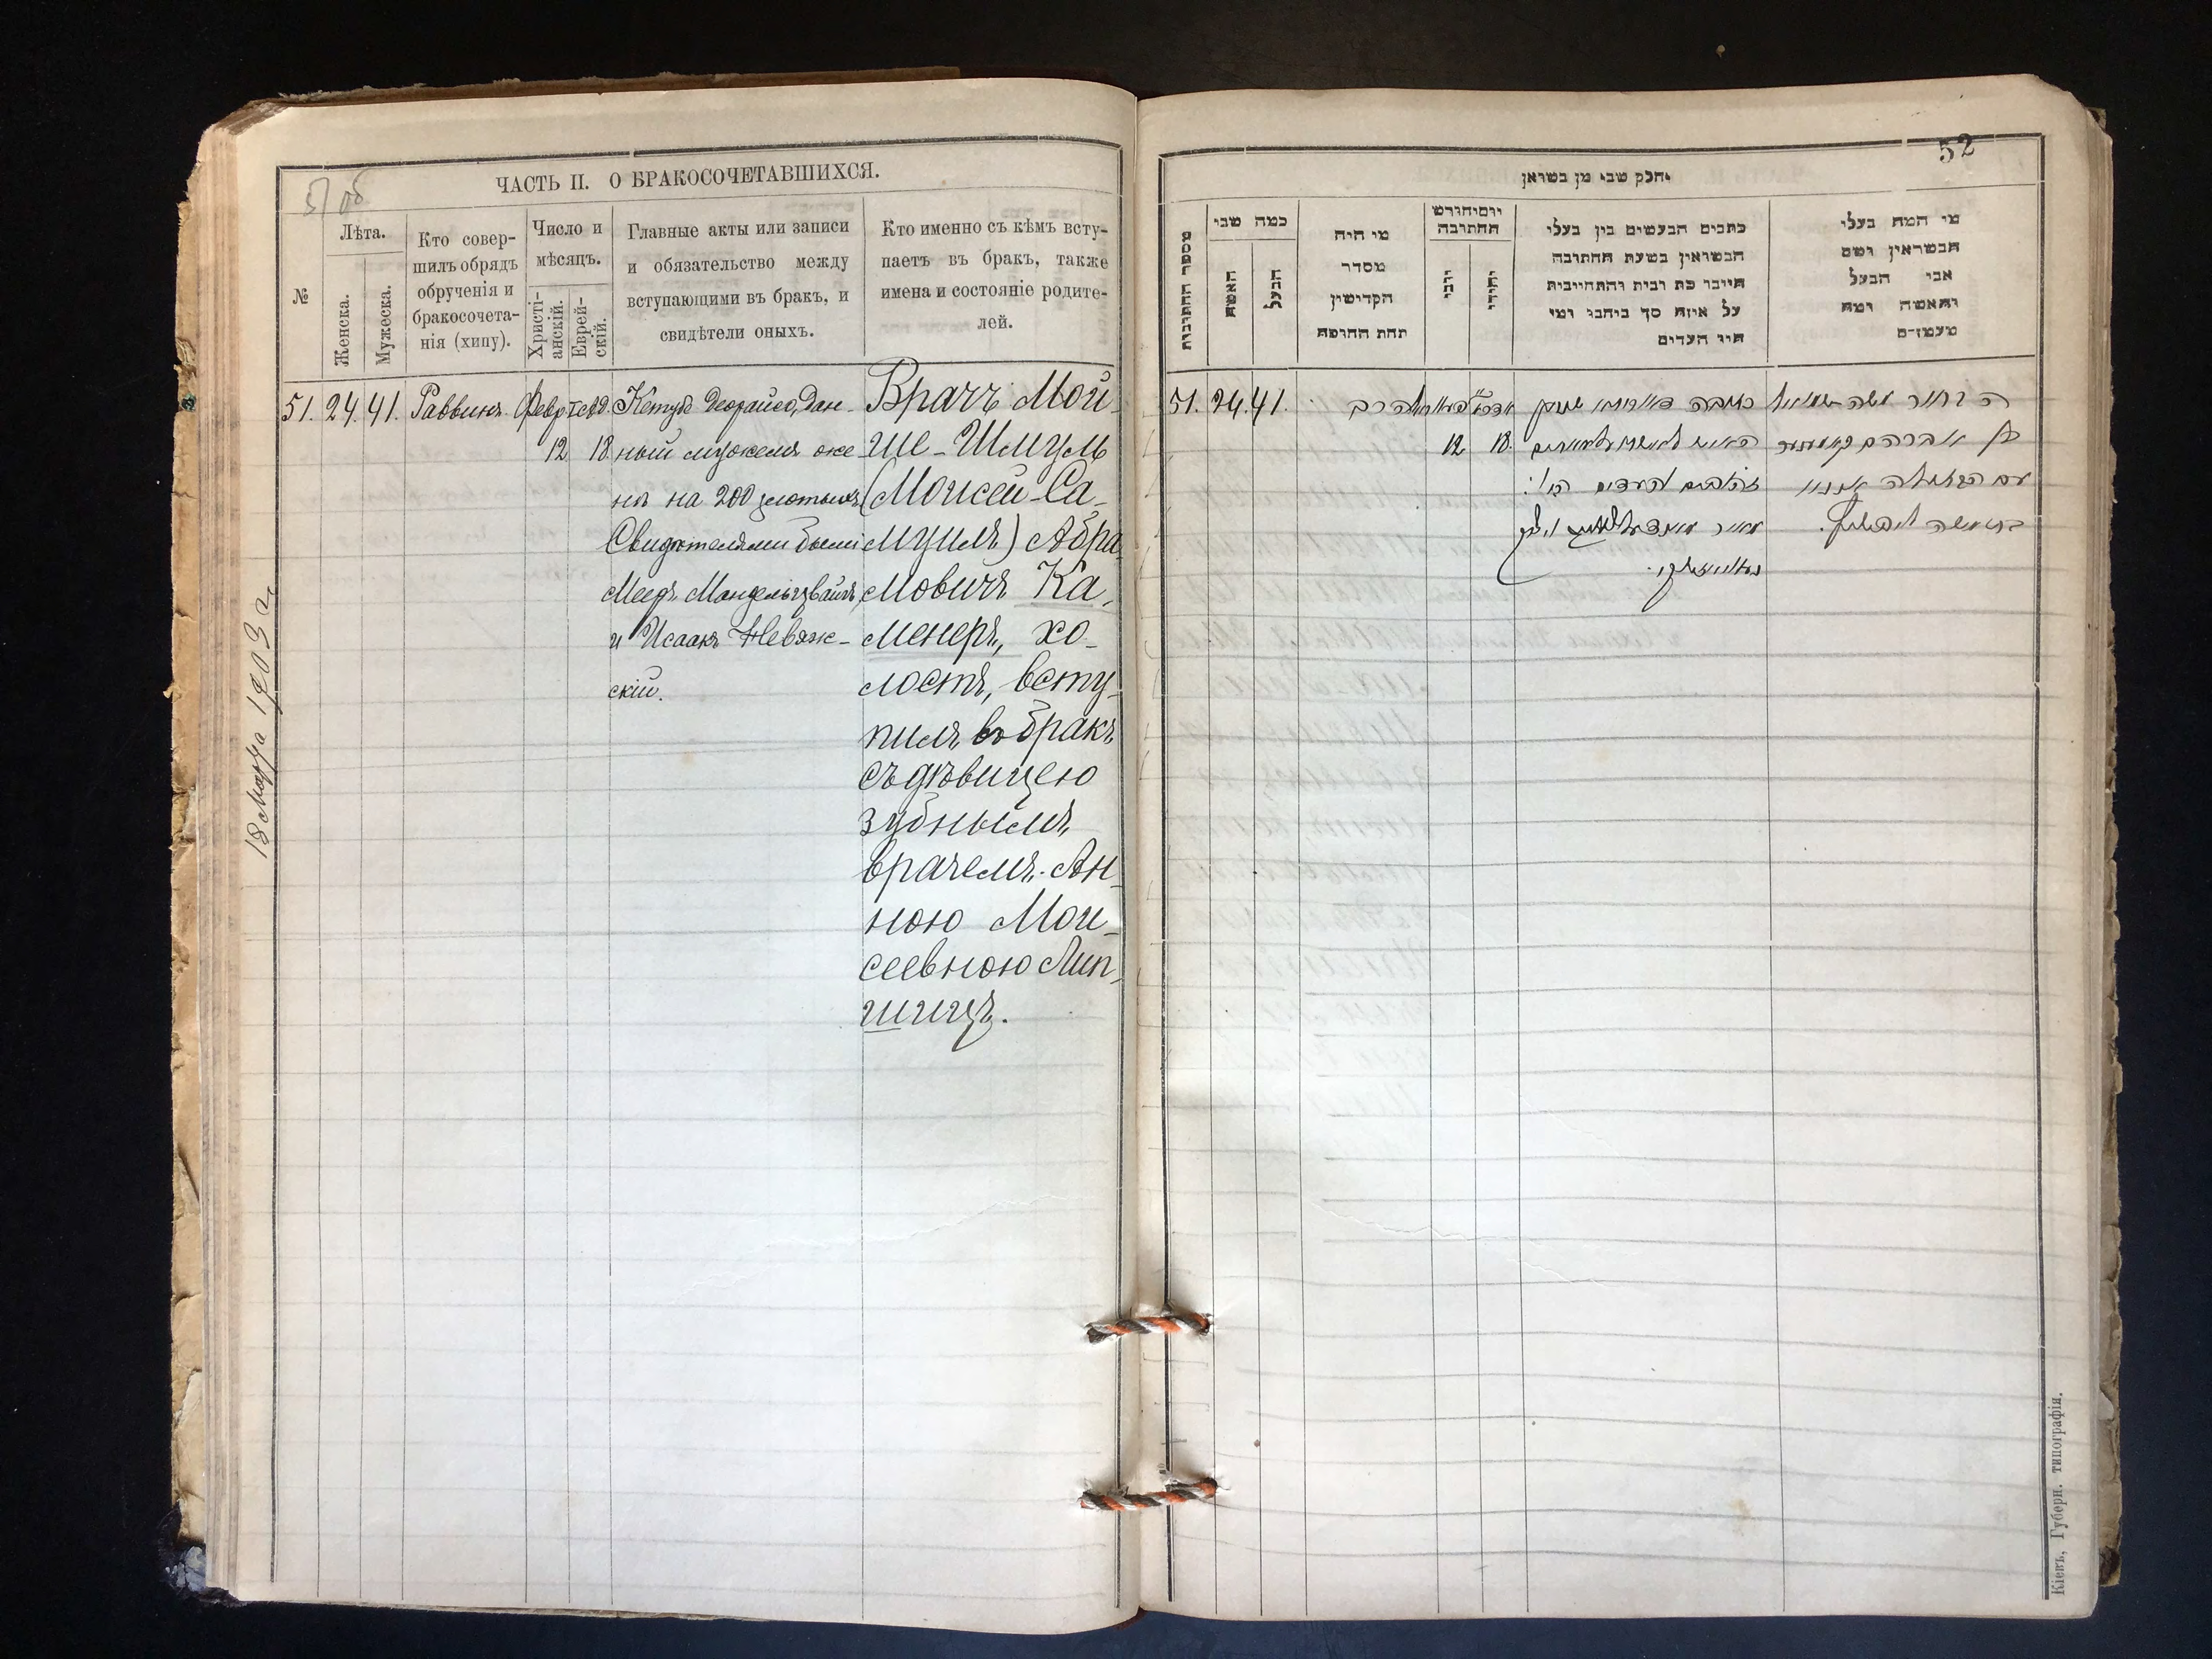 51 об
ЧАСТЬ II. О БРАКОСОЧЕТАВШИХСЯ.
№
Лѣта.
Женска.
Мужеска.
Кто совер-
шилъ обрядъ
обрученія и
бракосочета-
нія (хипу).
Число и
мѣсяцъ.
Христі-
анскій.
Еврей-
скій.
Главные акты или записи
и обязательство между
вступающими въ бракъ, и
свидѣтели оныхъ.
Кто именно съ кѣмъ всту-
паетъ въ бракъ, также
имена и состояніе родите-
лей.
51. 24. 41. Раввинъ. Февр.
12 18
Кетубо Деорайсо, дан-
ный мужемъ же-
нѣ на 200 золотыхъ
Свидѣтелями были
Мееръ Мандельцвайгъ,
и Исаакъ Невяж-
скій.
Врачъ Мой-
ше-Шмуль
(Моисей-Са-
муилъ) Абра-
мовичъ Ка-
менеръ, хо-
лостъ, всту-
пилъ въ бракъ
съ дѣвицею
зубнымъ
врачемъ Ан-
ною Мои-
сеевною Лип-
шицъ.
18 марта 1903 г.
52
מספר החתונות
כמה שני
האשה
הבעל
מי היה
מסדר
הקדישין
תחת החופה
כתבים הנעשים בין בעלי
הנשואין בשעת החתונה
על איזה סך
העדים
מי המה בעלי
הנשואין ושם
אבי הבעל
והאשה ומה
מעמדם
51. 24. 41.
הרב
12 18.
ה בחור משה שמואל
בן אברהם
עם הבתולה אננא
בת משה ליפשיץ.
Кіевъ, Губерн. типографія.